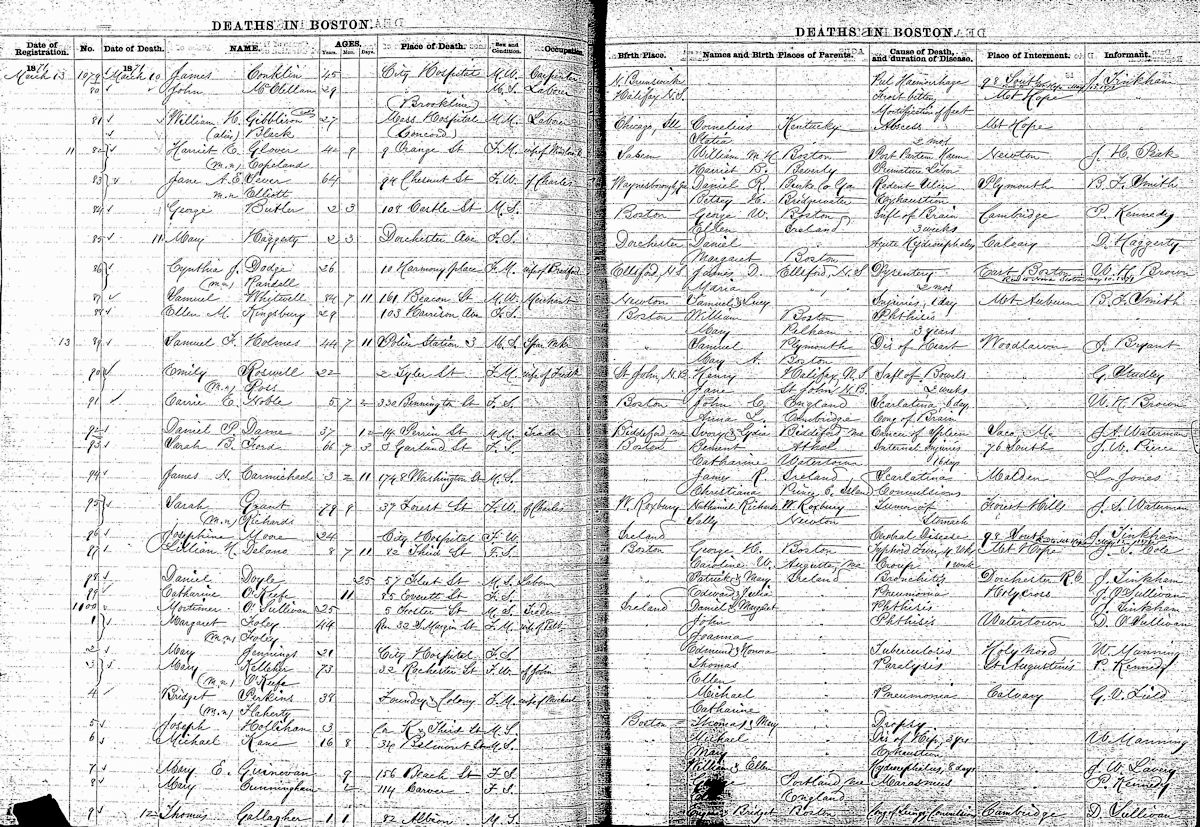 DEATHS IN BOSTON.
Date of Registration. No. Date of Death. NAME. AGES. Years. Mon. Days. Place of Death. Sex and Condition. Occupation.
1871 1871
March 13 1079 March 10 James Conklin 45 City Hospital M.W. Carpenter
80 " John McClellan 29 " M.S. Labour
(Brookline)
81 William H. Gibblison 27 Mass Hospital M.M. Labour
(alias) Black (Concord)
11 82 Harriet E. Glover 42 9 9 Orange St F.M. wife of
(m.n) Copeland
83 Jane A. E. 64 94 Chesnut St F.W. of Charles
m.n Elliott
84 George Butler 2 3 108 Castle St M.S.
85 11 Mary Haggerty 2 3 Dorchester Ave F.S.
86 Cynthia J. Dodge 26 10 Harmony place F.M. wife of
(m.n) Randall
87 Samuel Whitwell 84 7 11 161 Beacon St M.W. Merchant
88 Ellen M. Kingsbury 29 103 Harrison Ave F.S.
13 89 Samuel F. Holmes 44 7 11 Police Station 3 M.S.
90 Emily Roswell 22 2 Tyler St F.M. wife of
(m.n) Ross
91 Carrie E. Noble 5 7 2 330 Bennington St F.S.
92 Daniel P. Dame 37 12 14 Perrin St M.M. Trader
93 Sarah B. Ford 66 7 3 3 Garland St F.S.
94 James H. Carmichael 3 2 11 1748 Washington St M.S.
95 Sarah Grant 78 8 37 Forest St F.W. of Charles
(m.n) Richards
96 Josephine Moore 24 City Hospital F.W.
97 Lillian H. Delano 8 7 11 82 Third St F.S.
98 Daniel Doyle 25 57 Fleet St M.S. Labour
99 Catharine O'Keefe 11 85 Everett St F.S.
1100 Mortimer O'Sullivan 25 5 Chester St M.S. Trader
1 Margaret Foley 44 Rear 32 Margin St F.M. wife of Patk
(m.n) Foley
2 Mary Jennings 21 City Hospital F.S.
3 Mary Kelleher 73 32 Rochester St F.W. of John
(m.n) O'Keefe
4 Bridget Perkins 38 Foundry & Colony F.M. wife of Michael
(m.n) Flaherty
5 Joseph Hollihan 3 Third St M.S.
6 Michael Kane 16 8 34 Belmont M.S.
7 Mary E. Guinevan 9 156 Beach St F.S.
8 Mary Cunningham 2 114 Carver F.S.
9 12 Thomas Gallagher 1 1 82 Albion M.S.
DEATHS IN BOSTON.
Birth Place. Names and Birth Places of Parents. Cause of Death, and duration of Disease. Place of Interment. Informant.
N. Brunswick Pul Haemorrhage 98 South J. Tinkham
Halifax N.S. Frost bitten Mt Hope "
Mortification of feet
Chicago, Ill Cornelius Kentucky Abscess Mt Hope
Katie 2 mos
Salem William M. H. Boston Post Partem Newton J. H. Peak
Harriet B. Beverly Premature Labor
Waynesborough, Ga Daniel R. Burke Co Ga. Rodent Ulcer Plymouth B. F. Smith
Betsey E. Bridgewater Exhaustion
Boston George W. Boston Infl of Brain Cambridge P. Kennedy
Ellen Ireland 3 weeks
Dorchester Daniel " Acute Hydrocephalus Calvary D. Haggerty
Margaret Boston
Ellsford, N.S James D. Ellsford, N.S Dysentery East Boston W. H. Brown
Maria " 2 mos
Newton Samuel & Lucy Injuries, 1 day Mt Auburn B. F. Smith
Boston William Boston Phthisis "
Mary Pelham 3 years
" Samuel Plymouth Dis of Heart Woodlawn J. Bryant
Mary A. Boston
St John, N.B. Henry Halifax, N.S Infl of Bowels " G. Studley
Jane St John, N.B. 2 weeks
Boston John C. England Scarlatina 6 days " W. H. Brown
Anna L. Cambridge Cong of Brain
Biddeford Me Ivory & Lydia Biddeford, Me Cancer of Spleen Saco Me. J. A. Waterman
Boston Bement Athol Internal Injuries 76 South J. W. Pierce
Catharine Watertown 16 days
" James R. Ireland Scarlatina Malden L. Jones
Christiana Prince E. Island Convulsions
W. Roxbury Nathaniel Richards W. Roxbury Tumor of Forest Hills J. S. Waterman
Sally Newton Stomach
Ireland Cerebral Disease 98 South J. Tinkham
Boston George H. Boston Typhoid Fever, 4 wks Mt Hope J. T. Cole
Caroline W. Augusta, Me Croup 1 week
" Patrick & Mary Ireland Bronchitis Dorchester R.C. J. Tinkham
" Edward & Julia " Pneumonia Holycross J. O'Sullivan
Ireland Daniel & Margaret " Phthisis " J. Tinkham
" John " Phthisis Watertown D. O'Sullivan
Joanna "
" Edmund & Honora " Tuberculosis Holyhood W. Manning
" Thomas " Paralysis St Augustines P. Kennedy
Ellen "
" Michael " Pneumonia Calvary G. V. Field
Catharine "
Boston Thomas & Mary " Dropsy "
" Michael " Dis of Hip, 3 yrs " W. Manning
Mary " Exhaustion
" William & Ellen " Hydrocephalus, 8 days " J. W. Lavery
" Portland Me Marasmus " P. Kennedy
England
" Bridget Boston Cong of Lungs, Convulsions Cambridge D. Sullivan